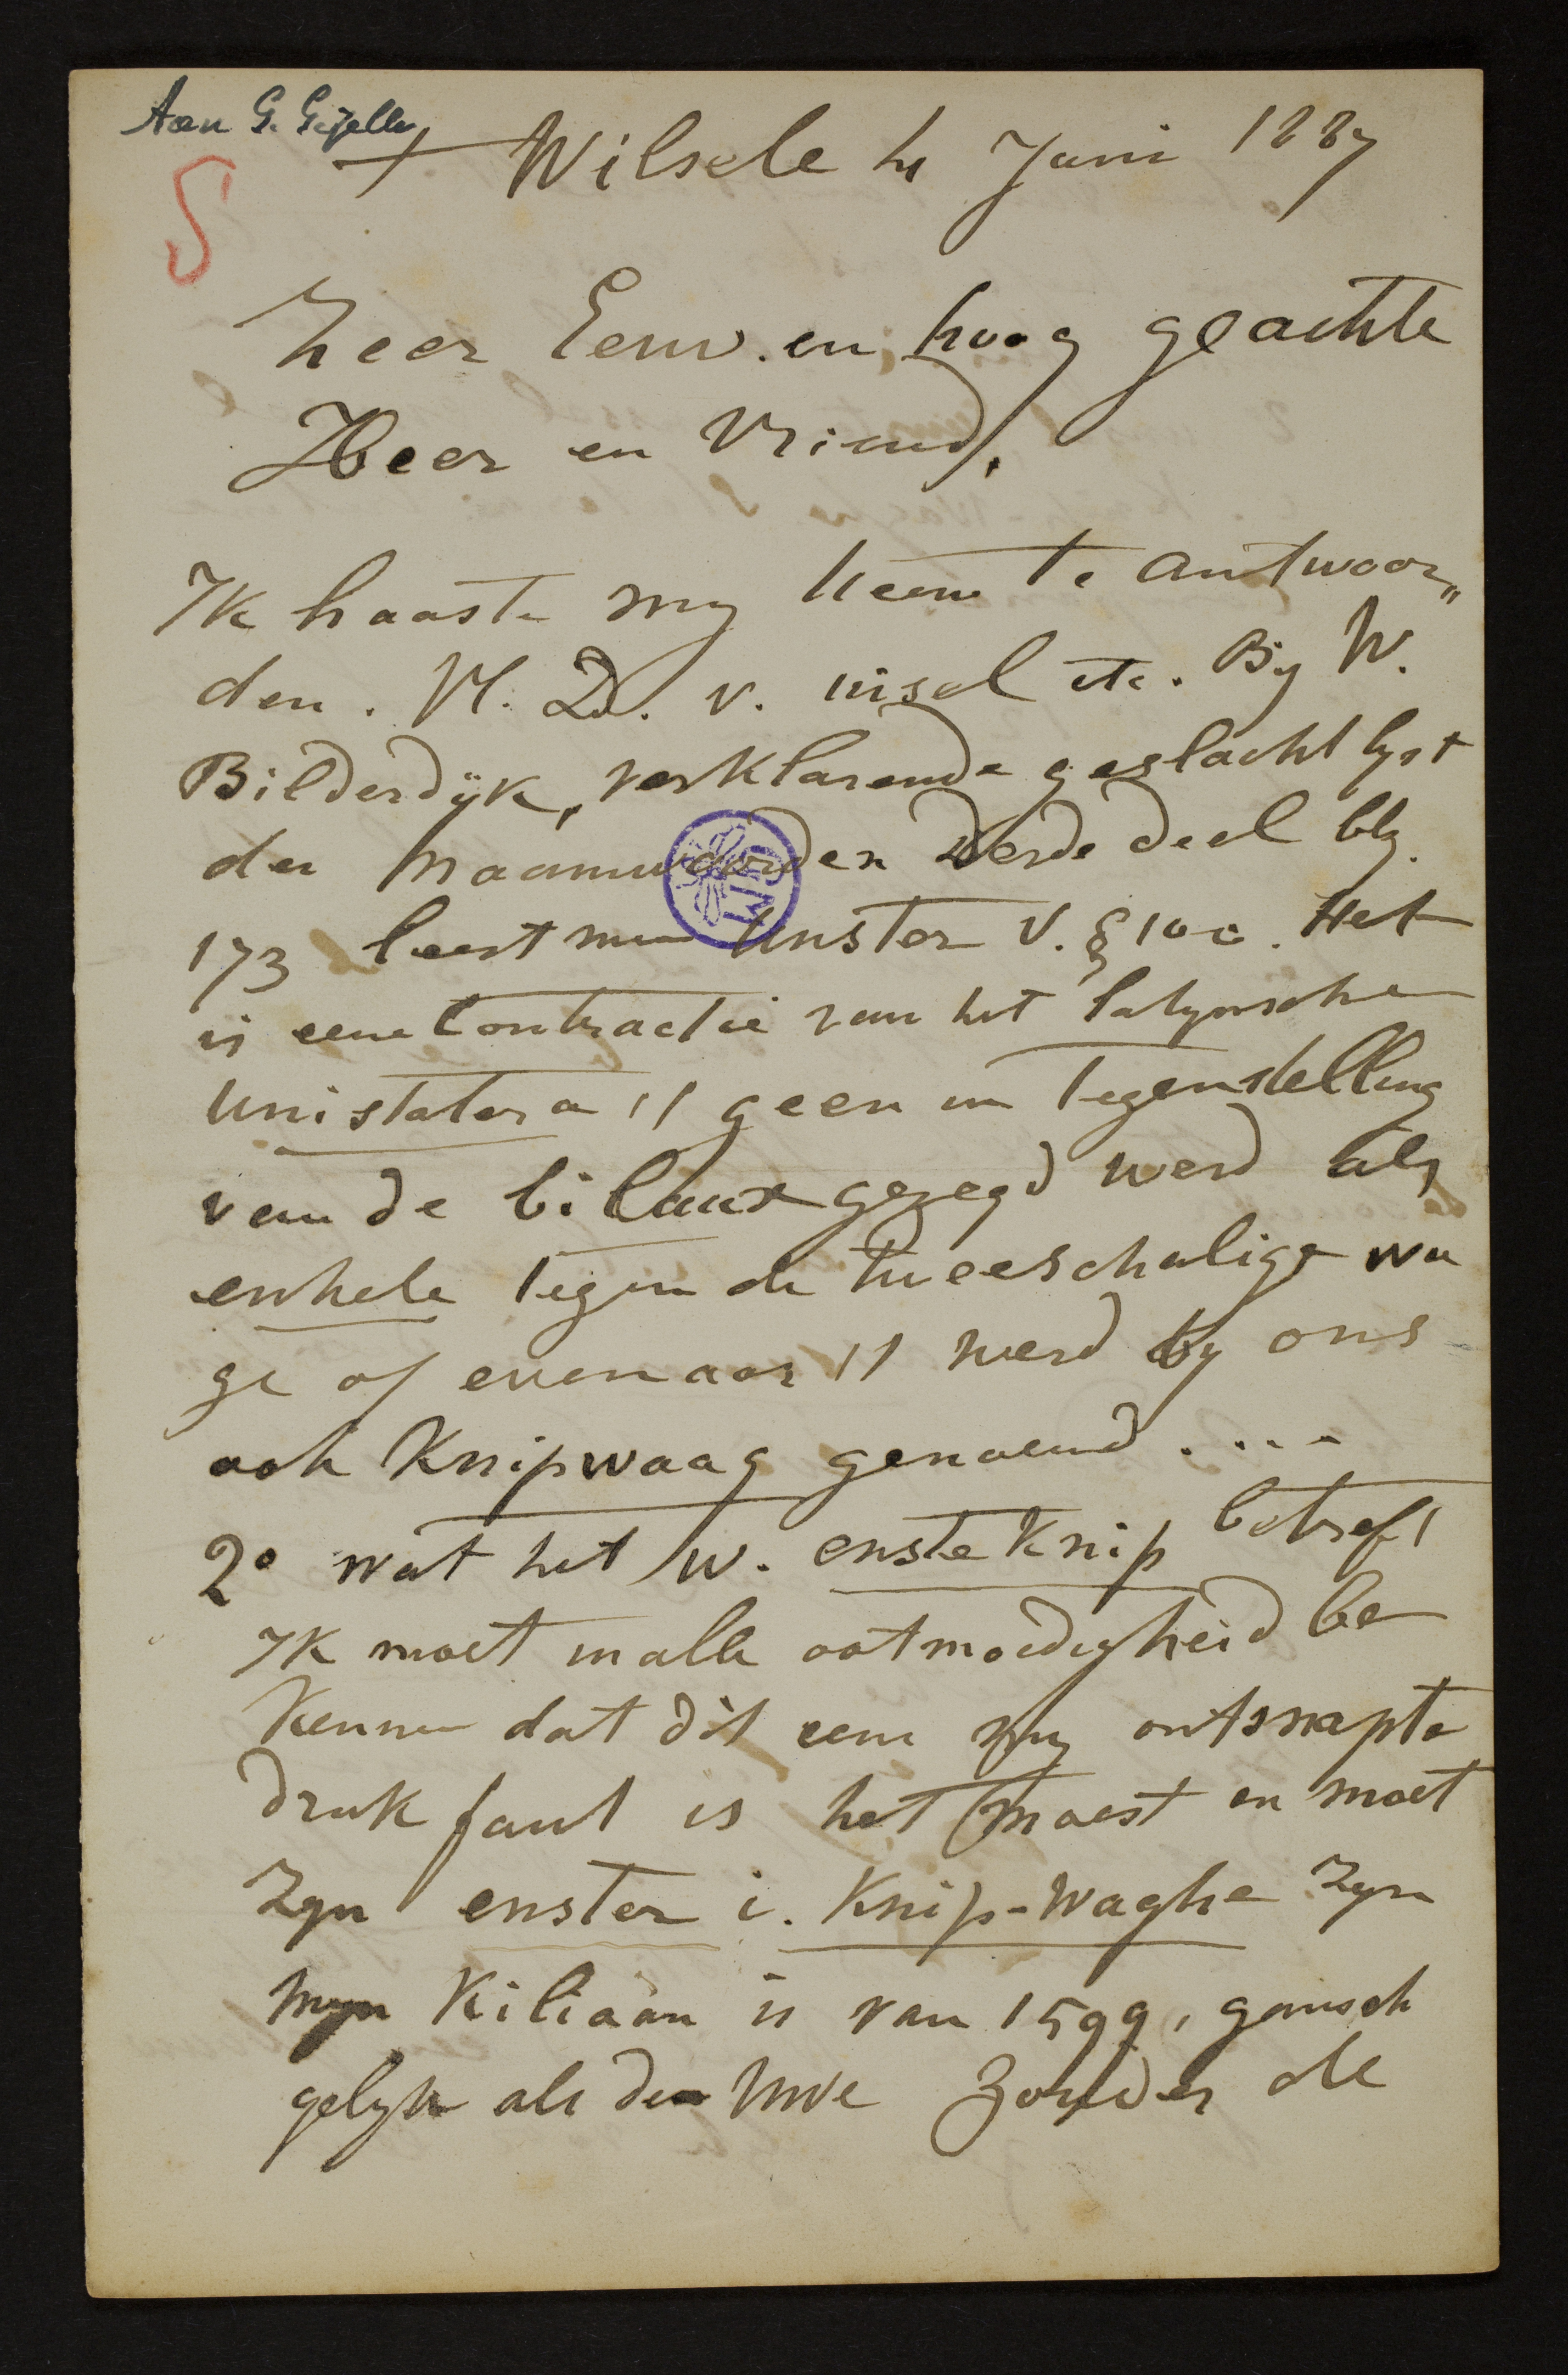 Aan G. Gezelle
+ Wilsele 4 Juni 1887
S
Zeer Eerw. en hoog geachte
Heer en Vriend,
Ik haaste my Ueene te antwoor„
den. Vl. D. v. uisel etc. By W.
Bilderdÿk, verklarende geslachtlyst
der naamwoorden derde deel blz.
173 leest men Unster V. § 100. Het
is eene Contractie van het latynsche
unistatera 't geen in tegenstelling
van de bilanx gezegd werd als
enkele tegen de tweeschalige wa
ge of evenaar 't werd by ons
ook Knipwaag genoemd ....
2° wat het w. enste Knip betreft
Ik moet in alle ootmoedigheid be
kennen dat dit eene my ontsnapte
druk faut is het moest en moet
Zyn enster i. Knip-Waghe Zyn
Myn Kiliaan is van 1599, gansch
gelyk als den Uwe Zonder de